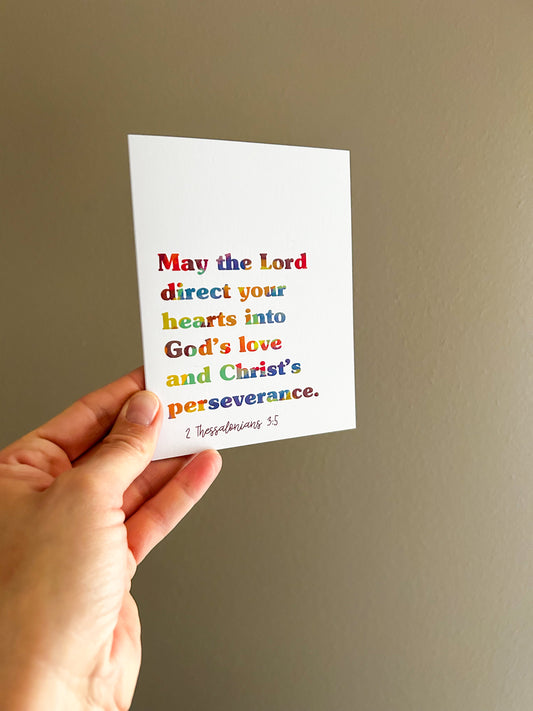 May the Lord
direct your
hearts into
God's love
and Christ's
perseverance.
2 Thessalonians 3:5